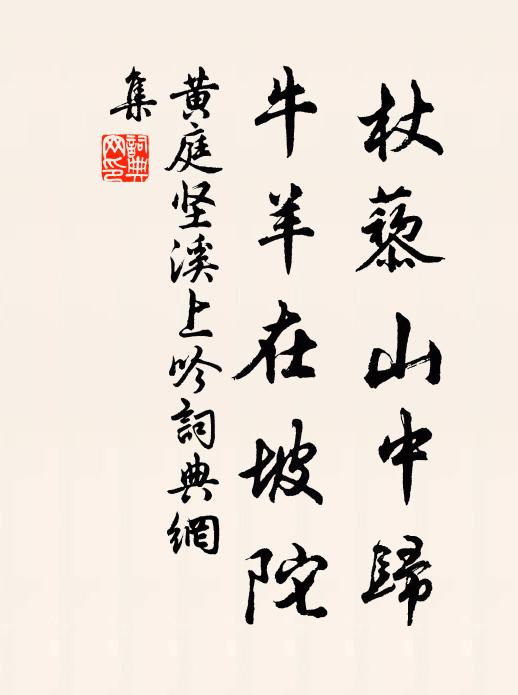 杖藜山中歸
牛羊在坡陀
黄庭坚溪上吟詞典網
集
詞典
网印